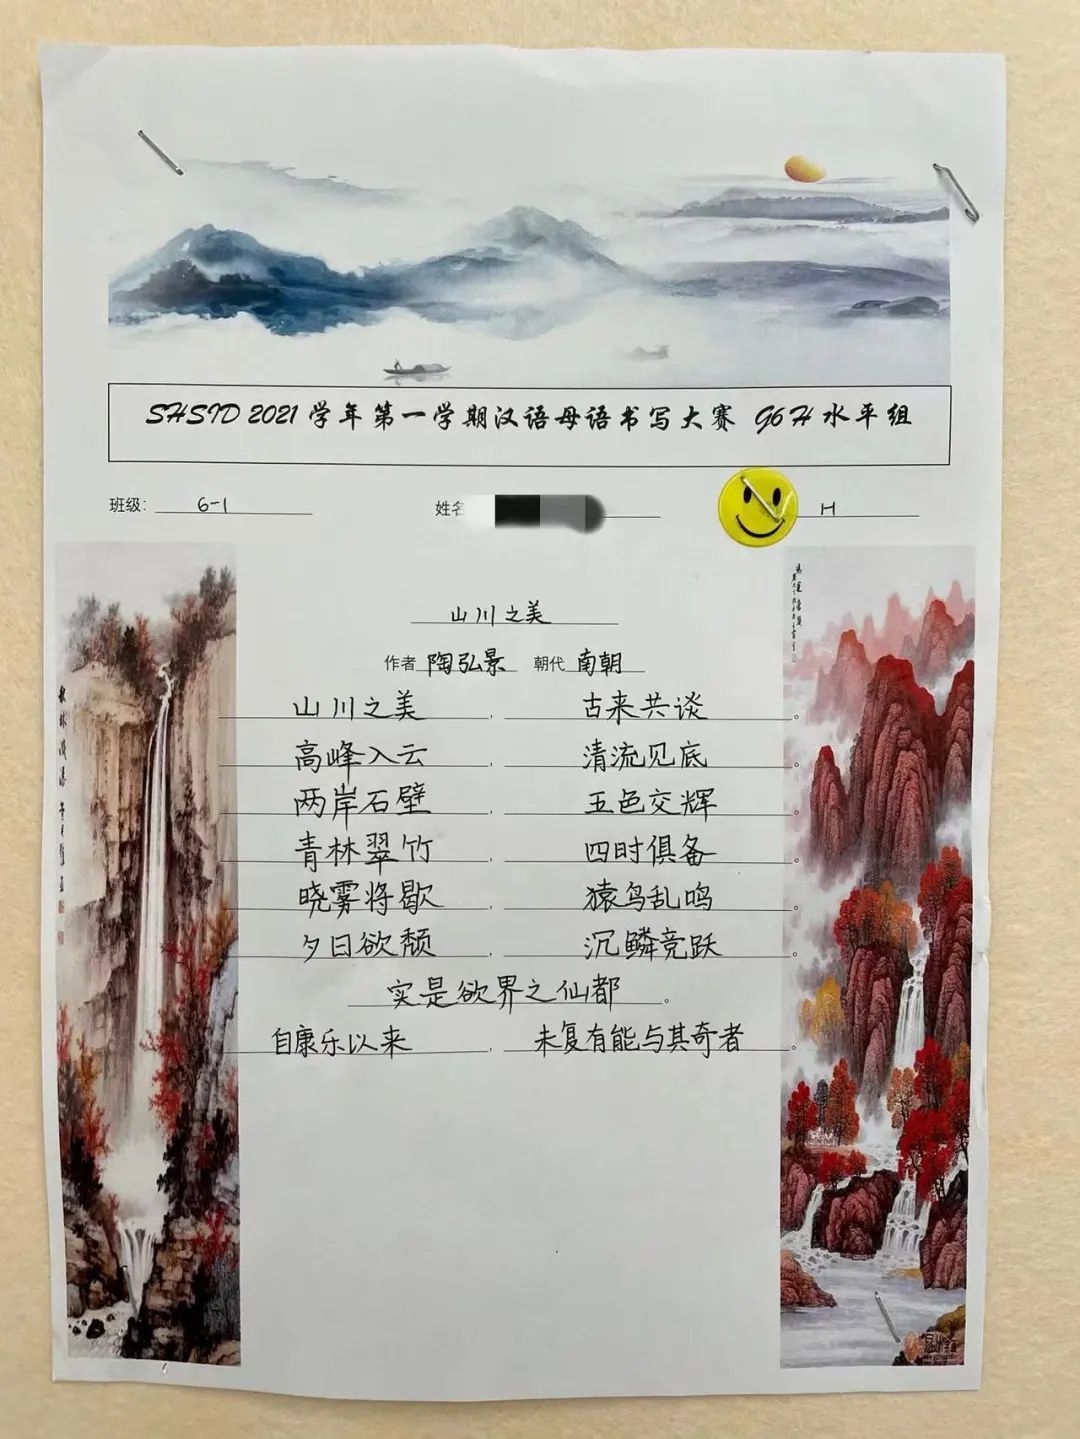 SHSID 2021 学年第一学期汉语母语书写大赛 G6 H 水平组
班级: 6-1 姓名 H
山川之美
作者 陶弘景 朝代 南朝
山川之美, 古来共谈。
高峰入云, 清流见底。
两岸石壁, 五色交辉。
青林翠竹, 四时俱备。
晓雾将歇, 猿鸟乱鸣。
夕日欲颓, 沉鳞竞跃。
实是欲界之仙都。
自康乐以来, 未复有能与其奇者。